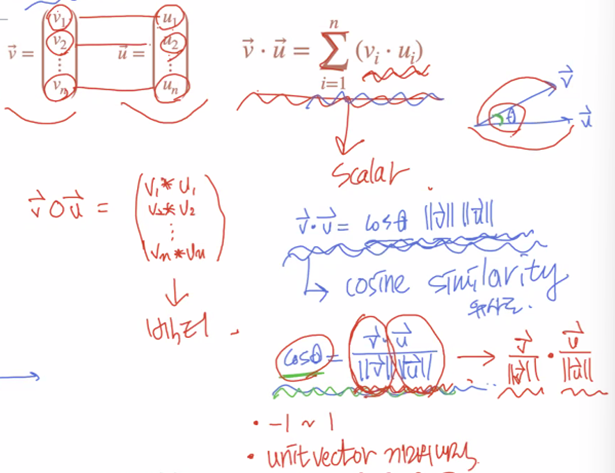 v⃗ = (v₁ v₂ ⋮ vₙ) u⃗ = (u₁ u₂ ⋮ uₙ)
v⃗ · u⃗ = Σ_{i=1}^{n} (vᵢ · uᵢ)
v⃗ θ u⃗
scalar.
v⃗ O u⃗ = (v₁ * u₁ v₂ * v₂ ⋮ vₙ * uₙ)
v⃗ · u⃗ = cosθ ||v⃗|| ||u⃗||
cosine similarity
유사도.
벡터.
cosθ = v⃗ · u⃗ / ||v⃗|| ||u⃗|| → v⃗ / ||v⃗|| · u⃗ / ||u⃗||
• -1 ~ 1
• unit vector